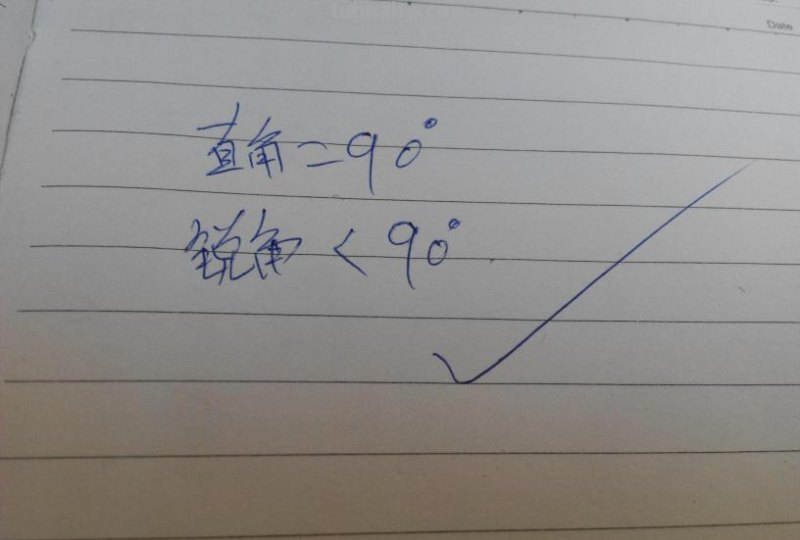 Date
直角=90°
锐角<90°